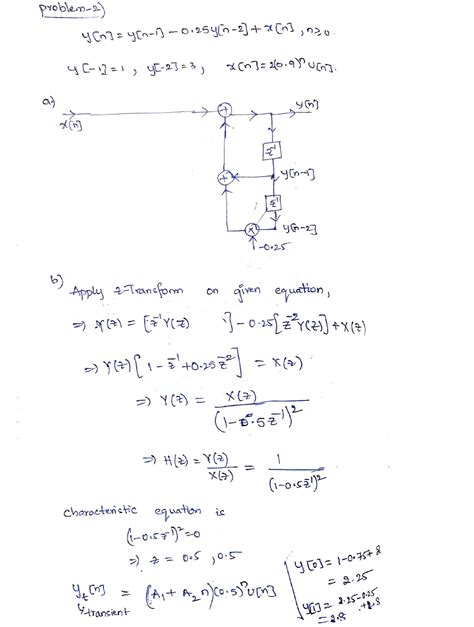 problem-2)
y[n] = y[n-1] - 0.25y[n-2] + x[n], n≥0
y[-1] = 1, y[-2] = 3, x[n] = 2(0.9)ⁿ u[n].
a)
x[n]
+
y[n]
z⁻¹
+
y[n-1]
z⁻¹
x
y[n-2]
-0.25
b) Apply z-Transform on given equation,
⇒ Y(z) = [z⁻¹Y(z) ] - 0.25[z⁻²Y(z)] + X(z)
⇒ Y(z) [1 - z⁻¹ + 0.25 z⁻²] = X(z)
⇒ Y(z) = X(z) / (1 - 0.5z⁻¹)²
⇒ H(z) = Y(z)/X(z) = 1 / (1 - 0.5z⁻¹)²
characteristic equation is
(1 - 0.5z⁻¹)² = 0
⇒ z = 0.5, 0.5
y_t[n] = (A₁ + A₂n)(0.5)ⁿ u[n]
y transient
y[0] = 1 - 0.75 + 2
= 2.25
y[1] = 2.25 - 0.25
+1.8